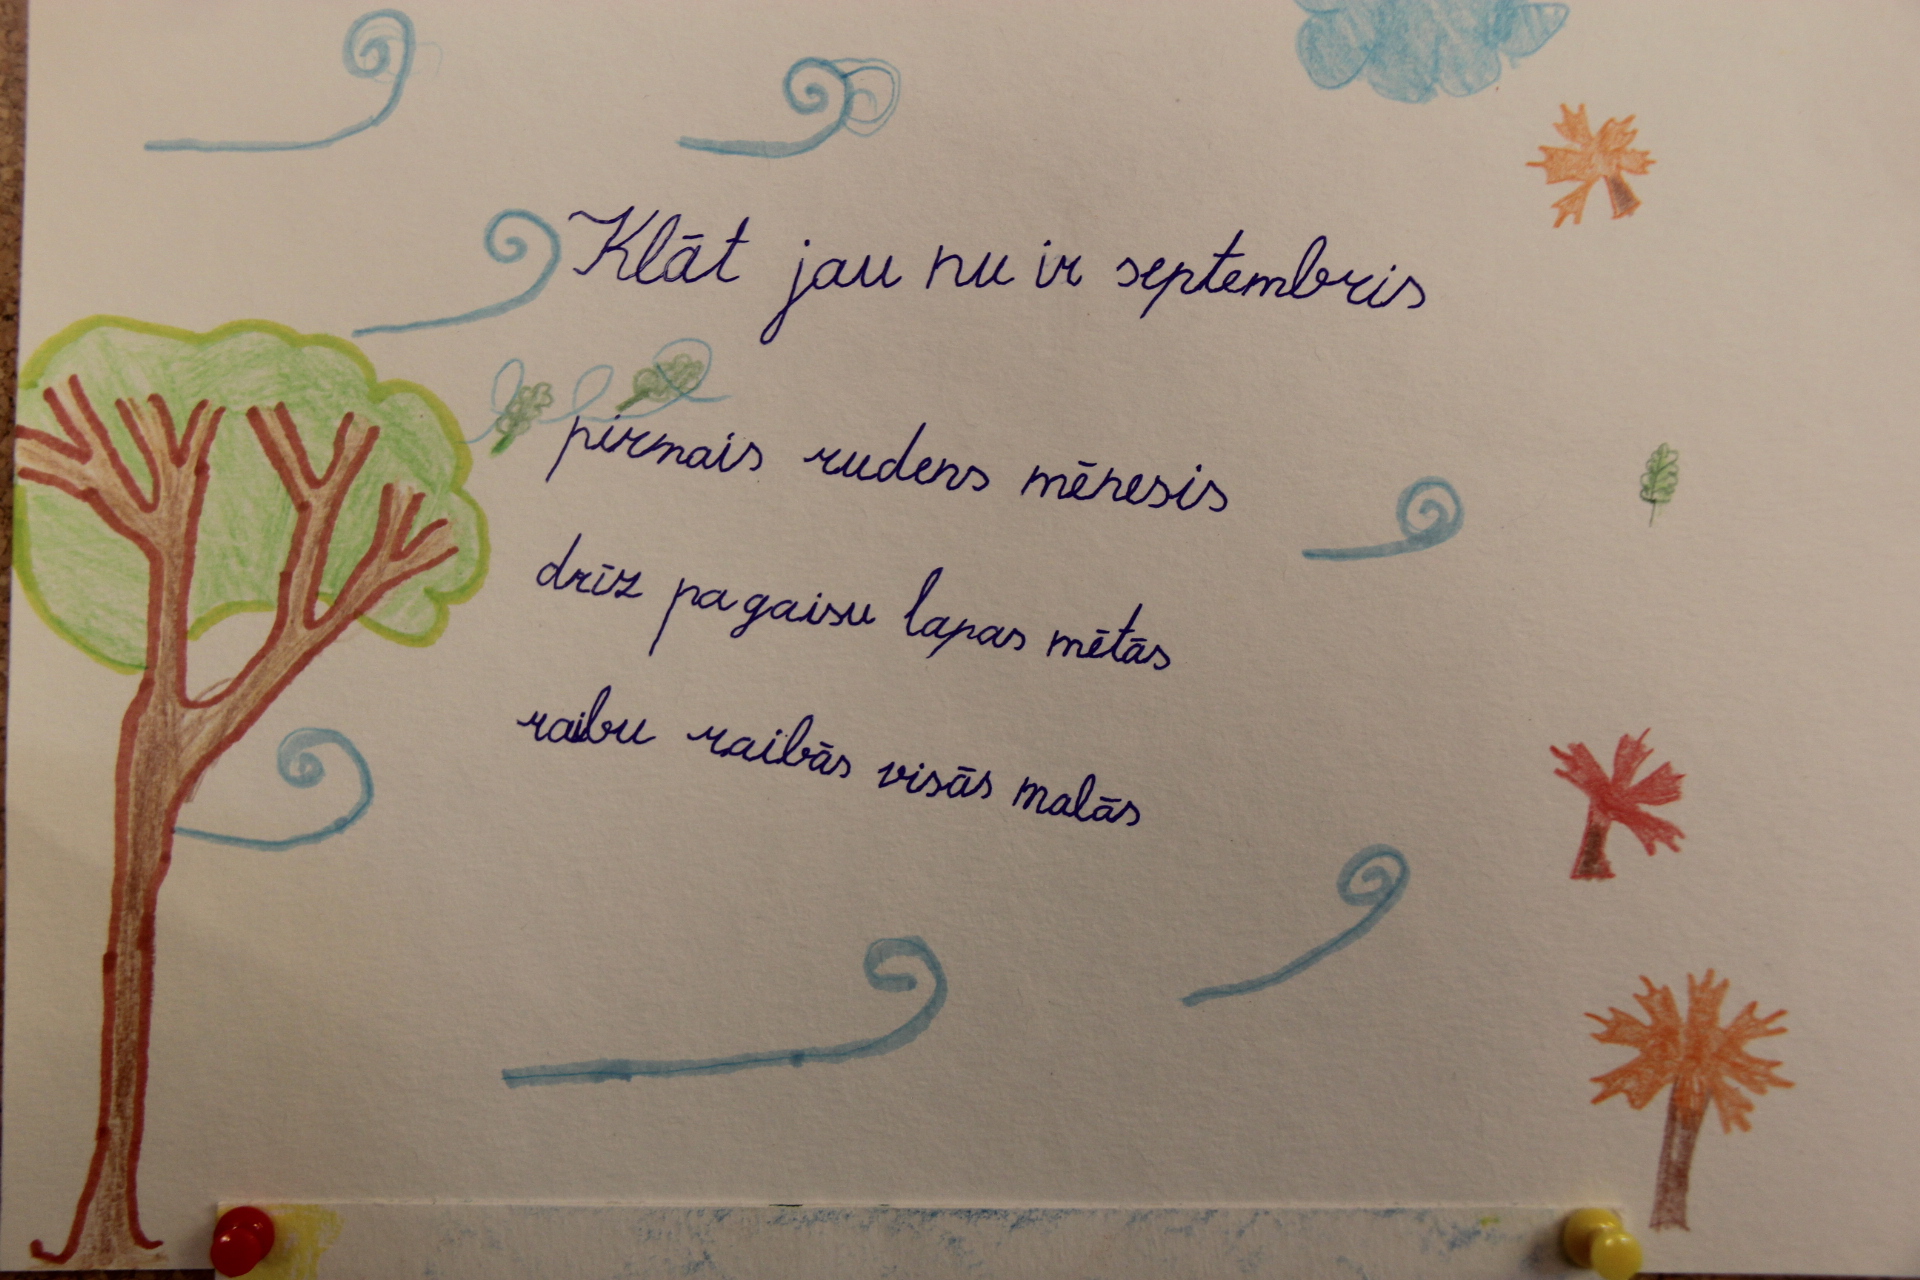 Klāt jau nu ir septembris
pirmais rudens mēnesis
drīz pa gaisu lapas mētās
raibu raibās visās malās